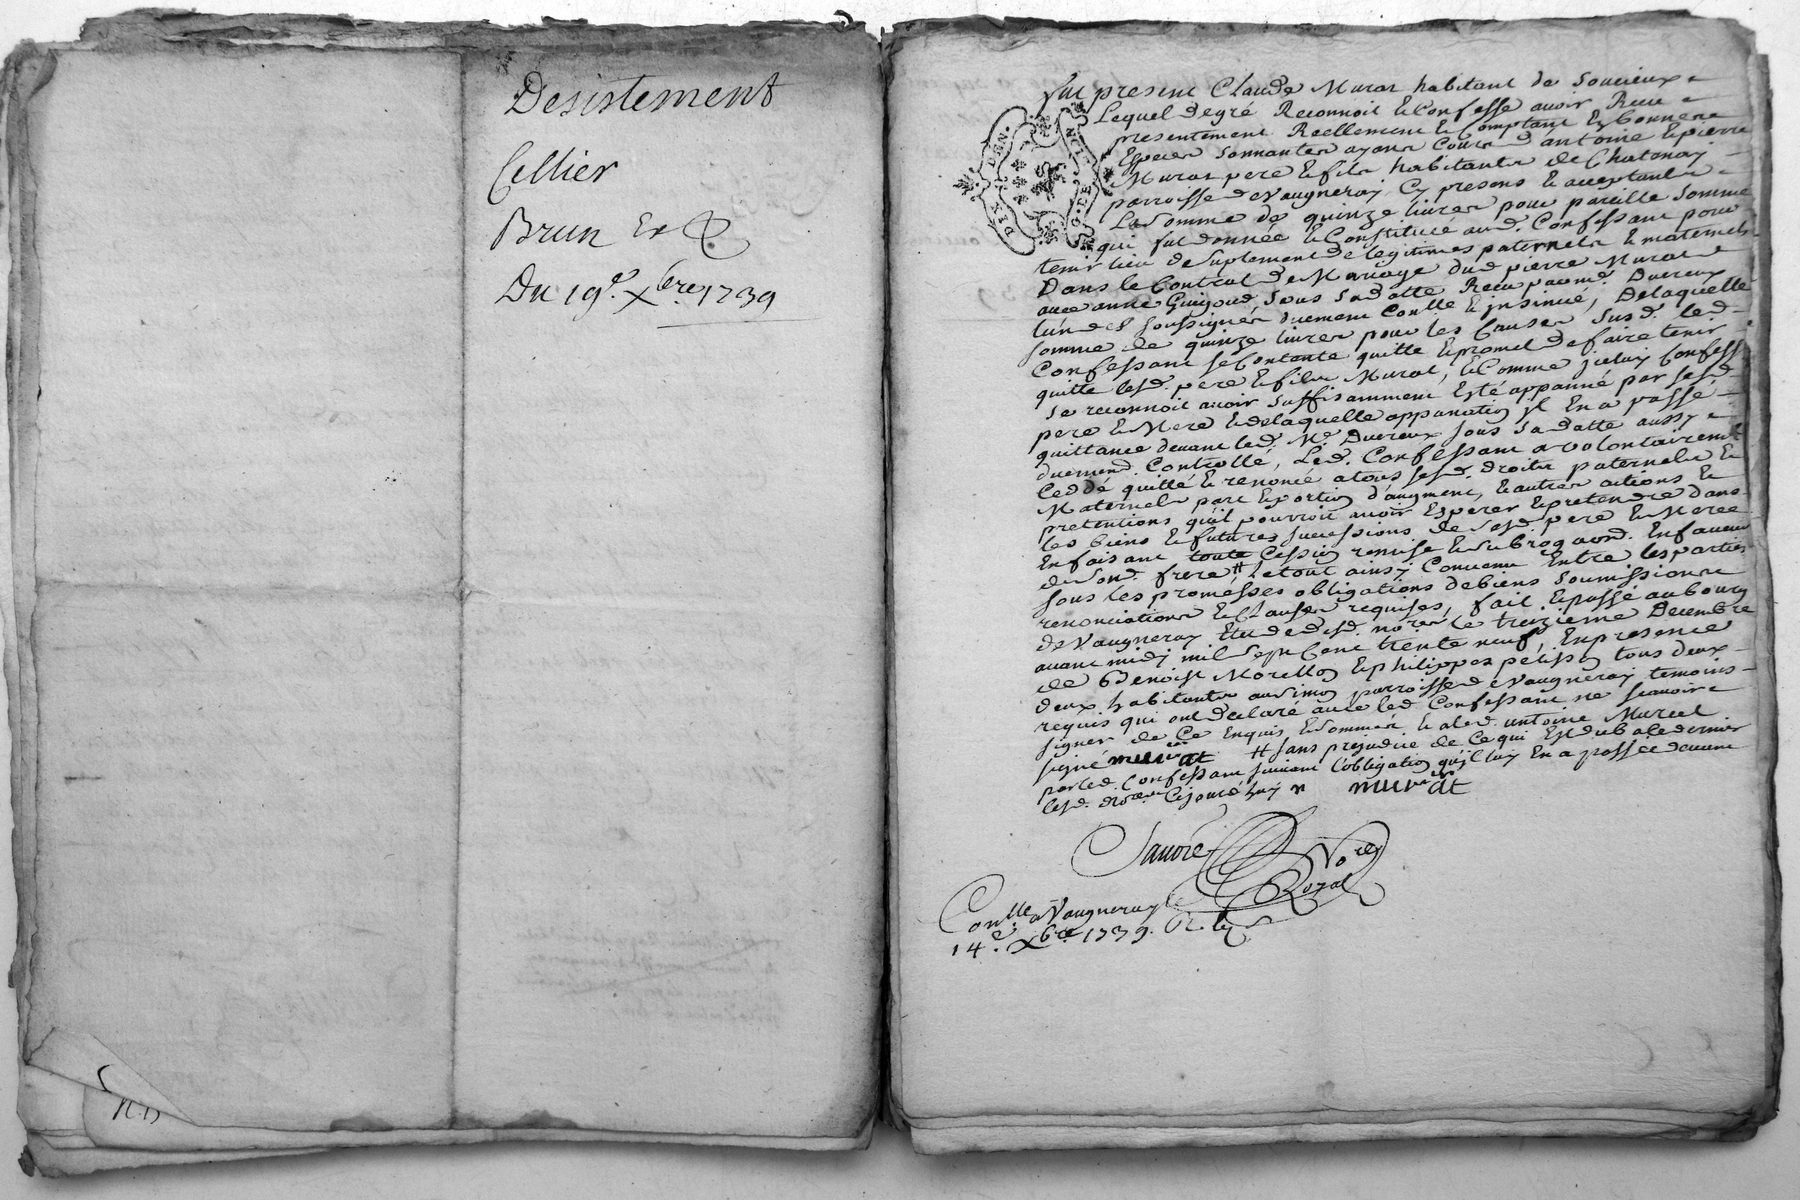 Desistement
Cellier
Brun Et
Du 19e. Xbre 1739
fut present Claude Murat habitant de Soucieux
Lequel degré Reconnoit & Confesse avoir Receu
presentement Reellement & Comptant En bonnes
Especes sonnantes ayans Cours d'antoine & pierre
Murat pere & fils habitants de Chatenay
parroisse de Vaugneray Cy presens & acceptants
La somme de quinze livres pour pareille somme
qui fut donnée & Constituée aud. Confessant pour
tenir lieu de suplement de legitimes paternels & maternels
Dans le Contrat de Mariage dud pierre Murat
avec anne Guigoud sous sa datte Receu par me. Ducreux
lun des soussignés duement Conlle & insinué, De laquelle
somme de quinze livres pour les Causes susd. led
Confessant se Contante quitte & promet de faire tenir
quitte lesd. pere & fils Murat, & Comme iceluy Confess
se reconnoit avoir suffisamment Esté appanné par sesd
pere & Mere & de laquelle appanation il En a passé
quittance devant led. Me. Ducreux sous sa datte aussy
duement Controllé, Led. Confessant a volontairement
Ceddé quitté & renoncé a tous sesd. droits paternels &
Maternels part & portion d'augment, & autres actions &
pretentions qu'il pourroit avoir Esperer & pretendre dans
les biens & futures successions de sesd. pere & Mere
En faisant toute Cession remise & subrogaon. En faveur
de sond. frere # Le tout ainsy Convenu Entre les parties
sous les promesses obligations de biens soumissions
renonciations & Clauses requises, fait & passé au bourg
de Vaugneray Etude desd. nores le treizieme Decembre
avant midy mil sept Cent trente neuf, En presence
de Benoist Morellon & philippes pelisson tous deux
deux habitants au simon parroisse de Vaugneray temoins
requis qui ont declaré avec led Confessant ne scavoir
signer de Ce Enquis & sommés & a led. antoine Murat
signé murat # sans prejudice de Ce qui Est du a le dernier
par led. Confessant suivant l'obligation qu'il luy En a passée devant
lesd. nores Cejourdhuy murat
Nore
Royal
Conlle. a Vaugneray le
14e. Xbre 1739.